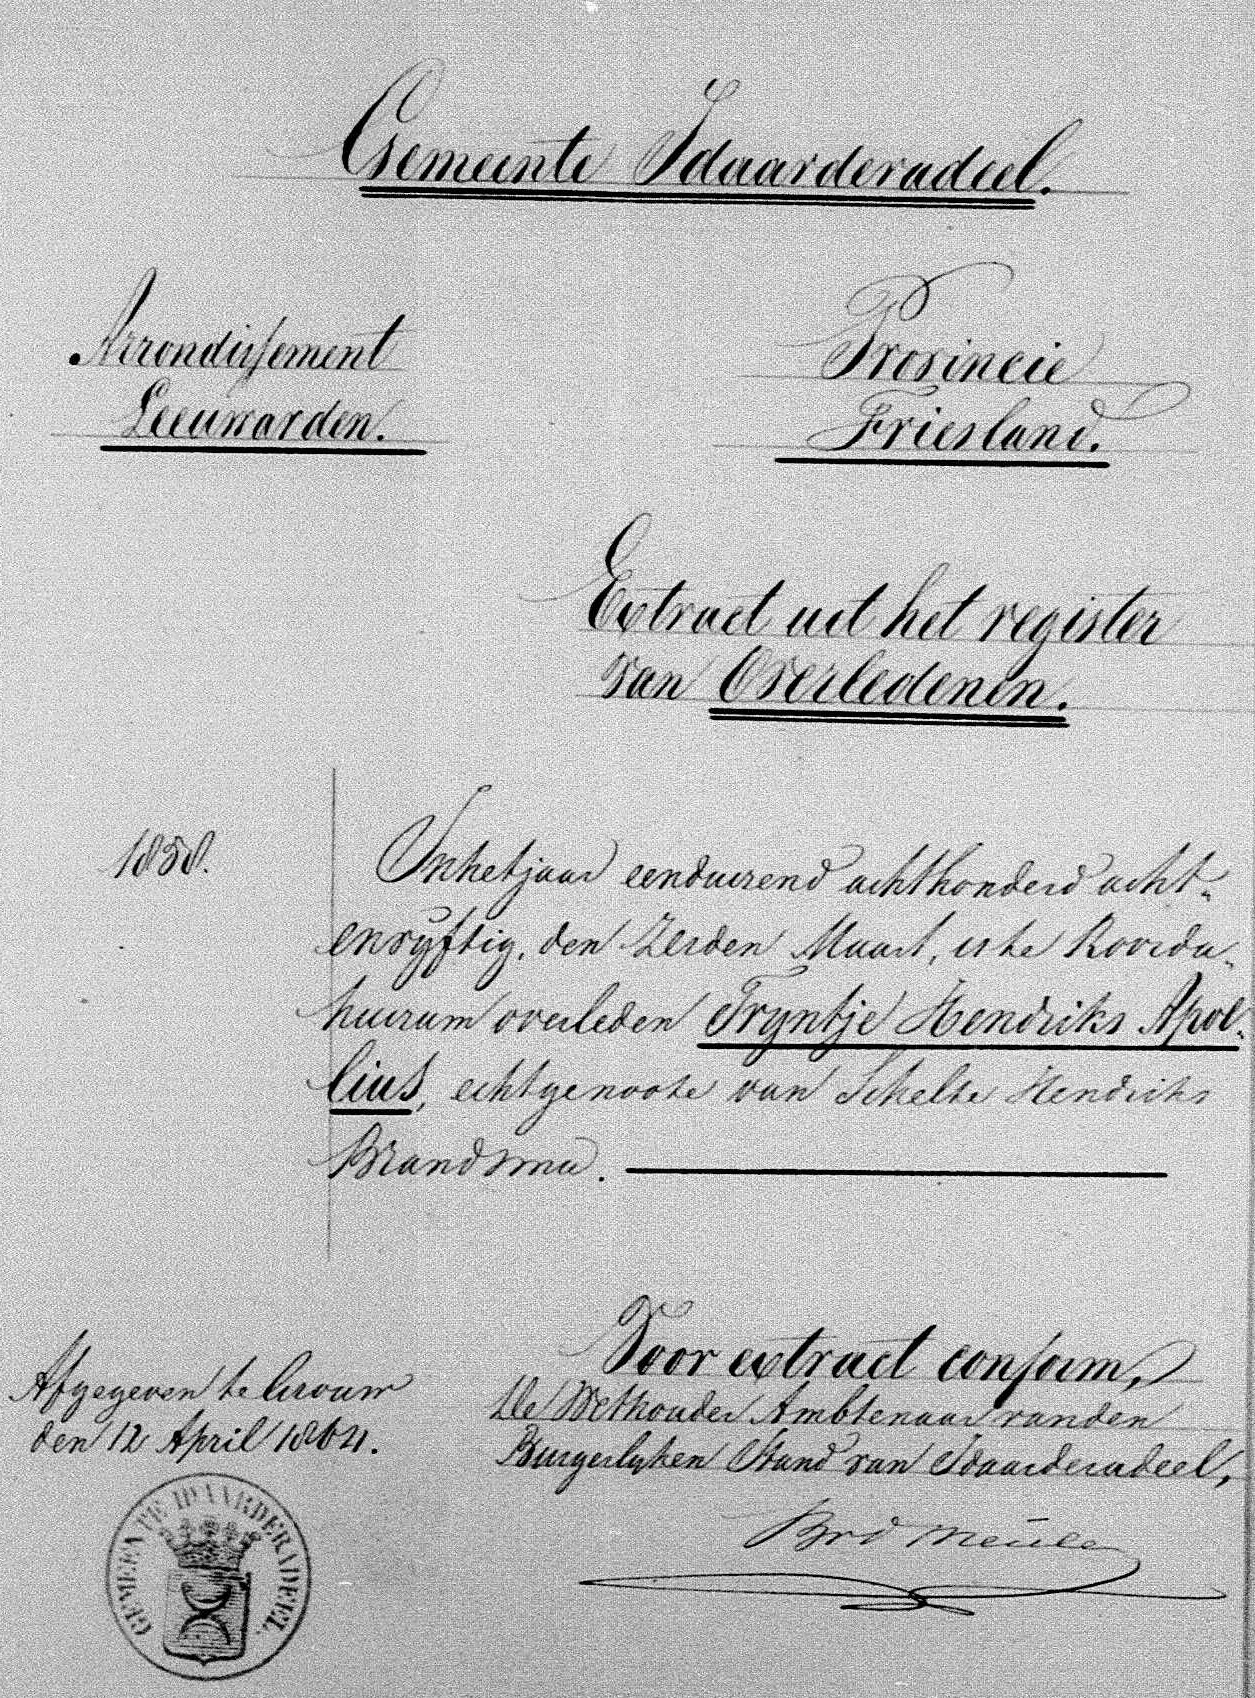 Gemeente Idaarderadeel.
Arrondissement
Leeuwarden.
Provincie
Friesland.
Extract uit het register
van Overledenen.
1858.
In het jaar eenduizend achthonderd acht-
envyftig, den zesden Maart, is te Roorda-
huizum overleden Tryntje Hendriks Apol-
lius, echtgenoote van Schelte Hendriks
Brandsma.
Voor extract conform,
De Wethouder Ambtenaar van den
Burgerlyken Stand van Idaarderadeel,
Afgegeven te Grouw
den 12 April 1864.
GEMEENTE IDAARDERADEEL.